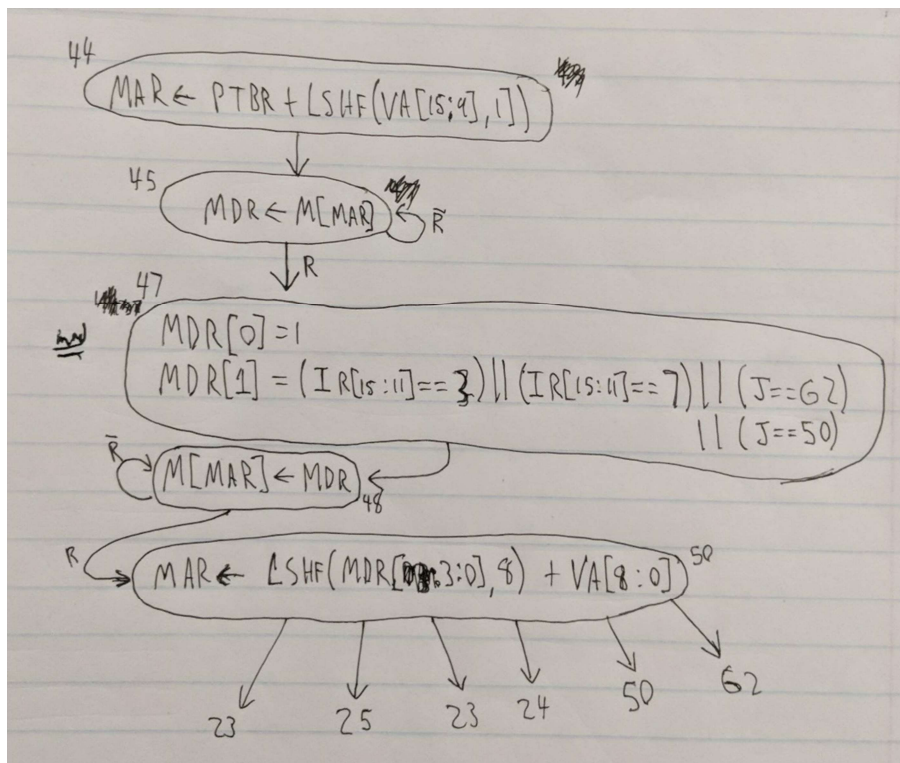 44
MAR ← PTBR + LSHF(VA[15:9],1])
45
MDR ← M[MAR] R̅
R
47
MDR[0]=1
MDR[1] = (IR[15:11]==3)||(IR[15:11]==7)||(J==62)
||(J==50)
R̅
M[MAR] ← MDR
48
R
MAR ← LSHF(MDR[3:0],8) + VA[8:0] 50
23 25 23 24 50 62